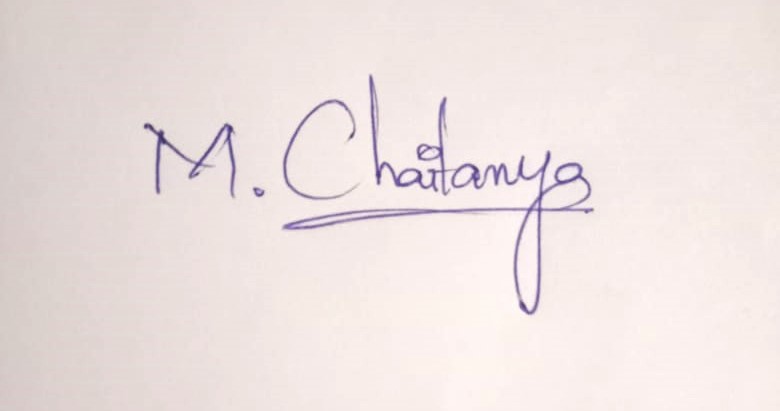 M. Chaitanya